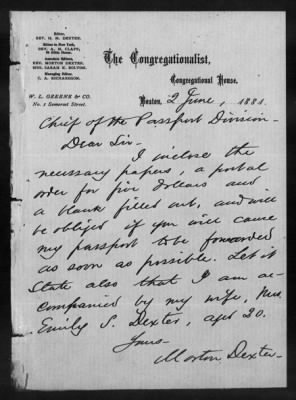 Editor,
REV. H. M. DEXTER.
Editor in New York,
REV. A. H. CLAPP,
Associate Editors,
REV. MORTON DEXTER,
MRS. SARAH K. BOLTON.
Managing Editor,
C. A. RICHARDSON.
W. L. GREENE & CO.
No. 1 Somerset Street.
The Congregationalist,
Congregational House.
Boston, 2 June, 1881.
Chief of the Passport Division-
Dear Sir-
I inclose the
necessary papers, a postal
order for five dollars and
a blank filled out, and will
be obliged if you will cause
my passport to be forwarded
as soon as possible. Let it
state also that I am ac-
companied by my wife, Mrs.
Emily S. Dexter, aged 30.
Yours-
Morton Dexter-